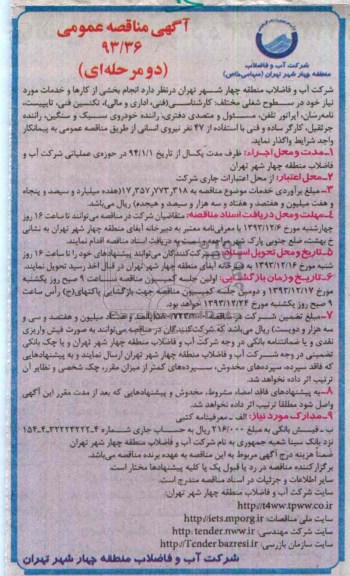 آگهی مناقصه عمومی
۹۳/۳۶
(دو مرحله‌ای)
شرکت آب و فاضلاب
منطقه چهار شهر تهران (سهامی خاص)
شرکت آب و فاضلاب منطقه چهار شهر تهران درنظر دارد انجام بخشی از کارها و خدمات مورد
نیاز خود در سطوح شغلی مختلف: کارشناسی(فنی، اداری و مالی)، تکنسین فنی، تایپیست،
نامه‌رسان، اپراتور تلفن، مسئول و متصدی دفتری، راننده خودروی سبک و سنگین، راننده
جرثقیل، کارگر ساده و فنی با استفاده از ۴۷ نفر نیروی انسانی از طریق مناقصه عمومی به پیمانکار
واجد شرایط واگذار نماید.
۱-مدت و محل اجراء: ظرف مدت یکسال از تاریخ ۹۴/۱/۱ در حوزه‌ی عملیاتی شرکت آب و
فاضلاب منطقه چهار شهر تهران
۲-محل اعتبار: از محل اعتبارات جاری شرکت
۳-مبلغ برآوردی خدمات موضوع مناقصه به ۱۷,۳۵۷,۷۷۳,۳۱۸(هفده میلیارد و سیصد و پنجاه
و هفت میلیون و هفتصد و هفتاد و سه هزار و سیصد و هیجده) ریال می‌باشد.
۴-مهلت و محل دریافت اسناد مناقصه: متقاضیان شرکت در مناقصه می‌توانند تا ساعت ۱۶ روز
چهارشنبه مورخ ۱۳۹۳/۱۲/۶ با معرفی‌نامه معتبر به دبیرخانه آبفای منطقه چهار شهر تهران به نشانی
خ بهشت، ضلع جنوبی پارک شهر مراجعه و نسبت به دریافت اسناد مناقصه اقدام نمایند.
۵-تاریخ و محل تحویل اسناد: شرکت‌کنندگان می‌توانند پیشنهادهای خود را تا ساعت ۱۶ روز
شنبه مورخ ۱۳۹۳/۱۲/۱۶ به دبیرخانه آبفای منطقه چهار شهر تهران در قبال اخذ رسید تحویل نمایند.
۶-تاریخ و زمان بازگشایی: اولین جلسه کمیسیون مناقصه راس ساعت ۹ صبح روز یکشنبه
مورخ ۱۳۹۳/۱۲/۱۷ و دومین جلسه کمیسیون مناقصه جهت بازگشایی پاکتهای(ج) رأس ساعت
۹ صبح روز یکشنبه مورخ ۱۳۹۳/۱۲/۲۴ خواهد بود.
۷-مبلغ تضمین شرکت در مناقصه میلیون و هفتصد و سی و
سه هزار و دویست) ریال می‌باشد که شرکت‌کنندگان در مناقصه می‌توانند به صورت فیش واریزی
نقدی و یا ضمانتنامه بانکی در وجه شرکت آب و فاضلاب منطقه چهار شهر تهران و یا چک بانکی
تضمینی در وجه شرکت آب و فاضلاب منطقه چهار شهر تهران ارسال نمایند و به پیشنهادهایی
که فاقد سپرده، سپرده‌های مخدوش، سپرده‌های کمتر از میزان مقرر، چک شخصی و نظایر آن
ترتیب اثر داده نخواهد شد.
۸-به پیشنهادهای فاقد امضاء، مشروط، مخدوش و پیشنهادهایی که بعد از مدت مقرر این آگهی
واصل شود مطلقا ترتیب اثر داده نخواهد شد.
۹-مدارک مورد نیاز: الف - معرفینامه کتبی
ب -فیش بانکی به مبلغ ۲۱۶/۰۰۰ ریال به حساب جاری شماره
نزد بانک سینا شعبه جمهوری به نام شرکت آب و فاضلاب منطقه چهار شهر تهران
ضمناً هزینه درج آگهی مربوط به این مناقصه به عهده برنده مناقصه می‌باشد.
برگزارکننده مناقصه در رد یا قبول یک یا کلیه پیشنهادها مختار است.
سایر اطلاعات و جزئیات در اسناد مناقصه مندرج است.
سایت شرکت آب و فاضلاب منطقه چهار شهر تهران:
http://t4ww.tpww.co.ir
سایت ملی مناقصات: http://iets.mporg.ir
سایت شرکت مهندسی: http:tender.nww.ir
سایت سازمان بازرسی: http://Tender.bazresi.ir
شرکت آب و فاضلاب منطقه چهار شهر تهران